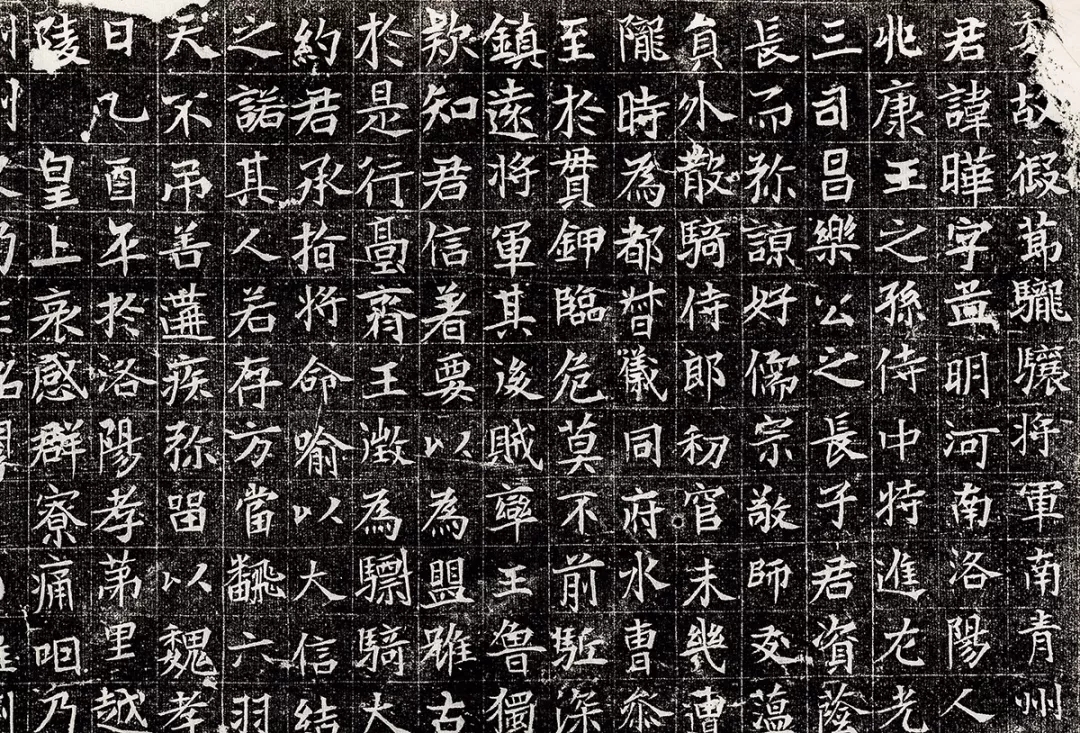 故假節龍驤將軍南青州
君諱曄字孟明河南洛陽人
北康王之孫侍中特進左光
三司昌樂公之長子君資蔭
長而弥諒好儒宗敬師友蕰
負外散騎侍郎初官未幾遭
隴時為都督儀同府水曹叅
至於貫鉀臨危莫不前駈深
鎮遠將軍其後賊率王魯獨
歎知君信著要以為盟雖古
於是行臺齊王澂為驃騎大
約君承指將命喻以大信結
之諾其人若存方當飜六羽
天不弔善遘疾弥留以魏孝
日己酉年於洛陽孝苐里越
陵皇上哀感群寮痛咽乃